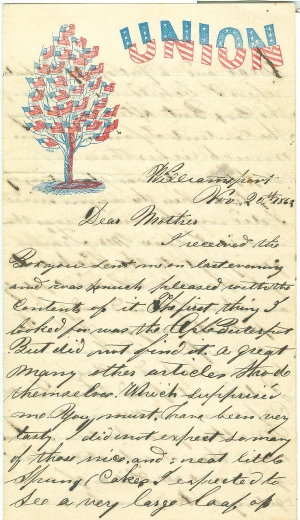 UNION
Williamsport
Nov. 20th 1863
Dear Mother
I received the
Box you sent me on last evening
and was much pleased with the
Contents of it. The first thing I
looked for was the
But did not find it. a great
many other articles
themselves. Which surprised
me. You must have been very
tasty. I did not expect so many
of those nice and neat little
Cakes I expected to
See a very large loaf of